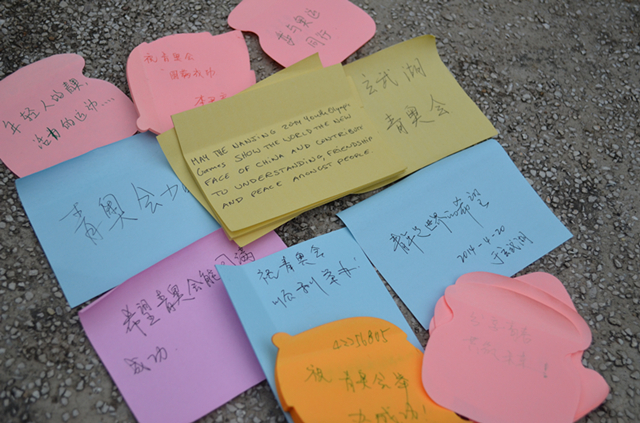 青奥
同行
祝青奥会
圆满成功
年轻人的
活力的运动....
玄武湖
青奥会
MAY THE NANJING 2014 Youth Olympic
Games SHOW THE WORLD THE NEW
FACE OF CHINA AND CONTRIBUTE
TO UNDERSTANDING, FRIENDSHIP
AND PEACE AMONGST PEOPLE.
青奥会
希望
2014-4-20
于玄武湖
希望青奥会能圆满
成功.
祝青奥会
顺利举办!
祝青奥会举
办成功!